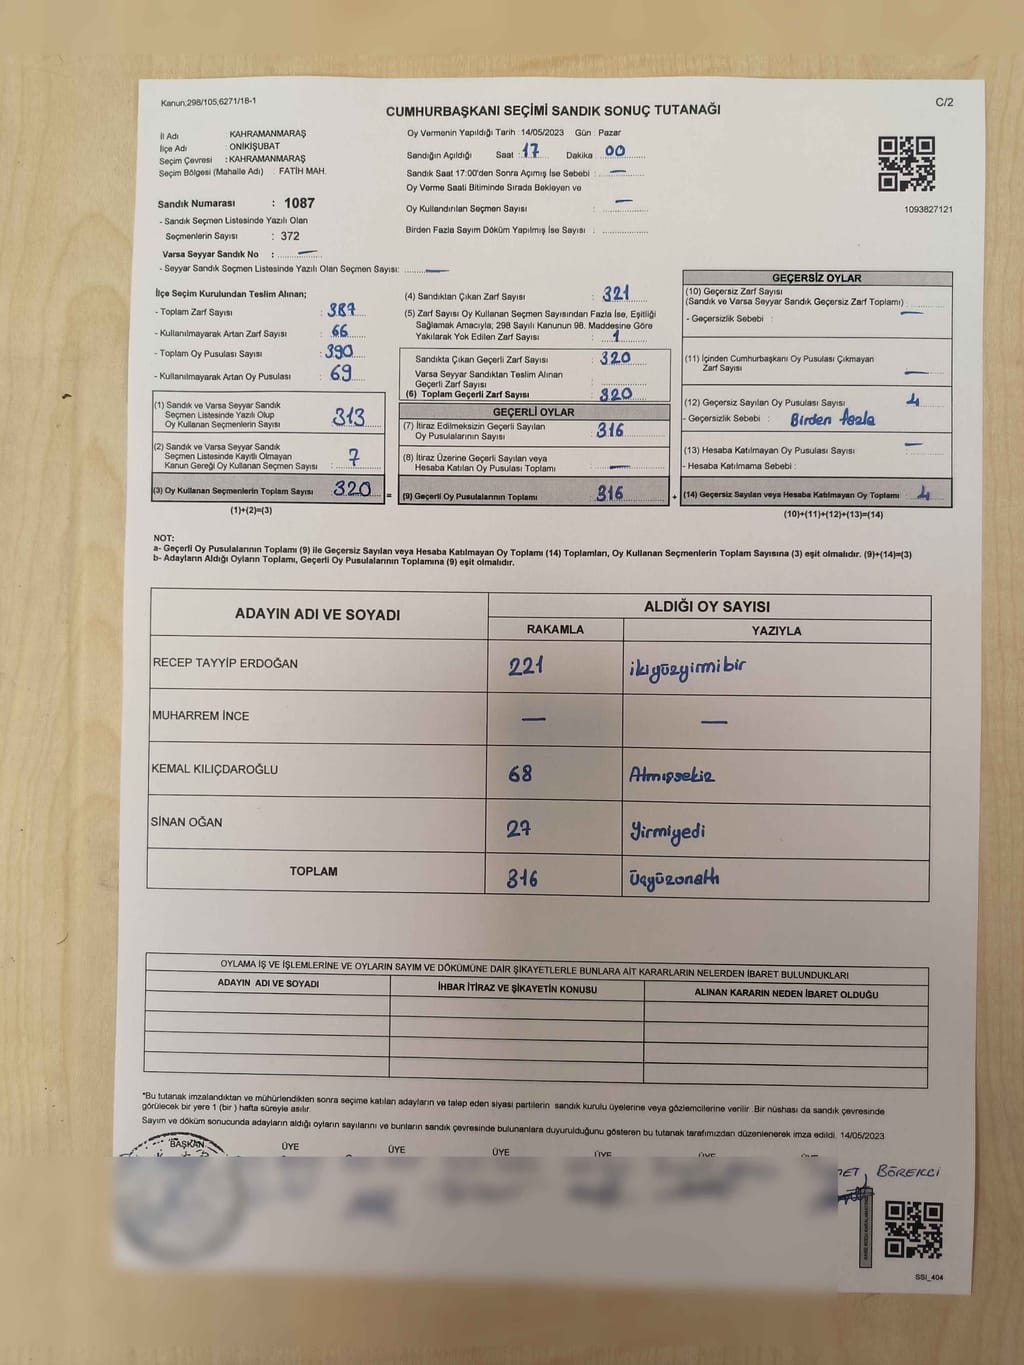 Kanun;298/105,6271/18-1
C/2
CUMHURBAŞKANI SEÇİMİ SANDIK SONUÇ TUTANAĞI
İl Adı : KAHRAMANMARAŞ
İlçe Adı : ONİKİŞUBAT
Seçim Çevresi : KAHRAMANMARAŞ
Seçim Bölgesi (Mahalle Adı) : FATİH MAH.
Sandık Numarası : 1087
- Sandık Seçmen Listesinde Yazılı Olan
Seçmenlerin Sayısı : 372
Varsa Seyyar Sandık No : —
- Seyyar Sandık Seçmen Listesinde Yazılı Olan Seçmen Sayısı: —
Oy Vermenin Yapıldığı Tarih : 14/05/2023 Gün : Pazar
Sandığın Açıldığı Saat : 17 Dakika : 00
Sandık Saat 17:00'den Sonra Açımış İse Sebebi : —
Oy Verme Saati Bitiminde Sırada Bekleyen ve
Oy Kullandırılan Seçmen Sayısı : —
Birden Fazla Sayım Döküm Yapılmış İse Sayısı :
1093827121
İlçe Seçim Kurulundan Teslim Alınan;
- Toplam Zarf Sayısı : 387
- Kullanılmayarak Artan Zarf Sayısı : 66
- Toplam Oy Pusulası Sayısı : 390
- Kullanılmayarak Artan Oy Pusulası : 69
(1) Sandık ve Varsa Seyyar Sandık
Seçmen Listesinde Yazılı Olup
Oy Kullanan Seçmenlerin Sayısı : 313
(2) Sandık ve Varsa Seyyar Sandık
Seçmen Listesinde Kayıtlı Olmayan
Kanun Gereği Oy Kullanan Seçmen Sayısı : 7
(3) Oy Kullanan Seçmenlerin Toplam Sayısı : 320 =
(1)+(2)=(3)
(4) Sandıktan Çıkan Zarf Sayısı : 321
(5) Zarf Sayısı Oy Kullanan Seçmen Sayısından Fazla İse, Eşitliği
Sağlamak Amacıyla; 298 Sayılı Kanunun 98. Maddesine Göre
Yakılarak Yok Edilen Zarf Sayısı : 1
Sandıkta Çıkan Geçerli Zarf Sayısı : 320
Varsa Seyyar Sandıktan Teslim Alınan
Geçerli Zarf Sayısı :
(6) Toplam Geçerli Zarf Sayısı : 320
GEÇERLİ OYLAR
(7) İtiraz Edilmeksizin Geçerli Sayılan
Oy Pusulalarının Sayısı : 316
(8) İtiraz Üzerine Geçerli Sayılan veya
Hesaba Katılan Oy Pusulası Toplamı : —
(9) Geçerli Oy Pusulalarının Toplamı : 316 +
GEÇERSİZ OYLAR
(10) Geçersiz Zarf Sayısı
(Sandık ve Varsa Seyyar Sandık Geçersiz Zarf Toplamı) : —
- Geçersizlik Sebebi :
(11) İçinden Cumhurbaşkanı Oy Pusulası Çıkmayan
Zarf Sayısı : —
(12) Geçersiz Sayılan Oy Pusulası Sayısı : 4
- Geçersizlik Sebebi : Birden fazla
(13) Hesaba Katılmayan Oy Pusulası Sayısı : —
- Hesaba Katılmama Sebebi :
(14) Geçersiz Sayılan veya Hesaba Katılmayan Oy Toplamı : 4
(10)+(11)+(12)+(13)=(14)
NOT:
a- Geçerli Oy Pusulalarının Toplamı (9) ile Geçersiz Sayılan veya Hesaba Katılmayan Oy Toplamı (14) Toplamları, Oy Kullanan Seçmenlerin Toplam Sayısına (3) eşit olmalıdır. (9)+(14)=(3)
b- Adayların Aldığı Oyların Toplamı, Geçerli Oy Pusulalarının Toplamına (9) eşit olmalıdır.
ADAYIN ADI VE SOYADI
ALDIĞI OY SAYISI
RAKAMLA YAZIYLA
RECEP TAYYİP ERDOĞAN 221 ikiyüzyirmibir
MUHARREM İNCE — —
KEMAL KILIÇDAROĞLU 68 Atmışsekiz
SİNAN OĞAN 27 Yirmiyedi
TOPLAM 316 Üçyüzonaltı
OYLAMA İŞ VE İŞLEMLERİNE VE OYLARIN SAYIM VE DÖKÜMÜNE DAİR ŞİKAYETLERLE BUNLARA AİT KARARLARIN NELERDEN İBARET BULUNDUKLARI
ADAYIN ADI VE SOYADI İHBAR İTİRAZ VE ŞİKAYETİN KONUSU ALINAN KARARIN NEDEN İBARET OLDUĞU
*Bu tutanak imzalandıktan ve mühürlendikten sonra seçime katılan adayların ve talep eden siyasi partilerin sandık kurulu üyelerine veya gözlemcilerine verilir. Bir nüshası da sandık çevresinde
görülecek bir yere 1 (bir ) hafta süreyle asılır.
Sayım ve döküm sonucunda adayların aldığı oyların sayılarını ve bunların sandık çevresinde bulunanlara duyurulduğunu gösteren bu tutanak tarafımızdan düzenlenerek imza edildi. 14/05/2023
BAŞKAN ÜYE ÜYE ÜYE ÜYE ÜYE
BÖREKCİ
SSI_404